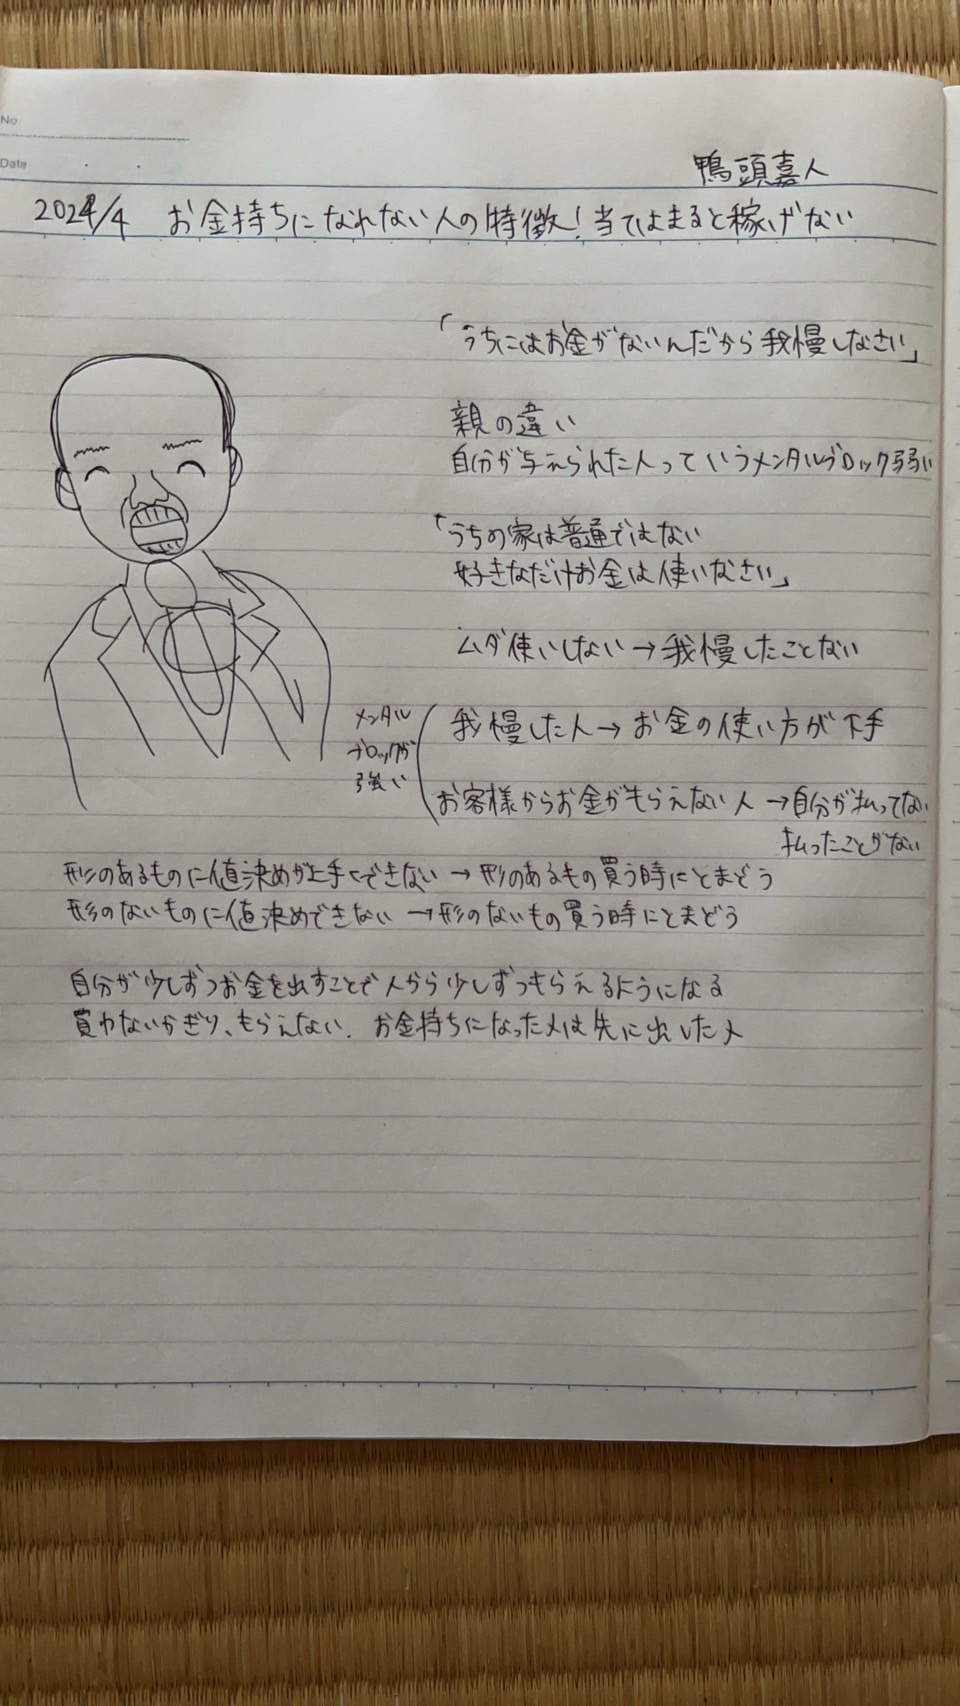 No
Date
鴨頭嘉人
2024/4 お金持ちになれない人の特徴!当てはまると稼げない
「うちにはお金がないんだから我慢しなさい」
親の違い
自分が与えられた人っていうメンタルブロック弱い
「うちの家は普通ではない
好きなだけお金は使いなさい」
ムダ使いしない→我慢したことない
メンタル
ブロックが
強い
我慢した人→お金の使い方が下手
お客様からお金がもらえない人→自分が払ってない
払ったことがない
形のあるものに値決めが上手くできない→形のあるもの買う時にとまどう
形のないものに値決めできない→形のないもの買う時にとまどう
自分が少しずつお金を出すことで人から少しずつもらえるようになる
買わないかぎり、もらえない. お金持ちになった人は先に出した人